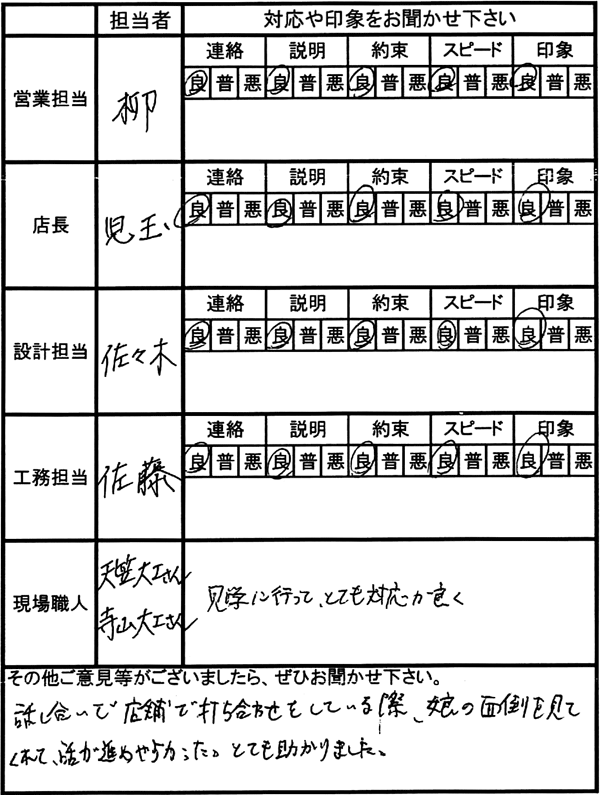 担当者 対応や印象をお聞かせ下さい
連絡 説明 約束 スピード 印象
営業担当 柳 良 普 悪 良 普 悪 良 普 悪 良 普 悪 良 普 悪
連絡 説明 約束 スピード 印象
店長 児玉 良 普 悪 良 普 悪 良 普 悪 良 普 悪 良 普 悪
連絡 説明 約束 スピード 印象
設計担当 佐々木 良 普 悪 良 普 悪 良 普 悪 良 普 悪 良 普 悪
連絡 説明 約束 スピード 印象
工務担当 佐藤 良 普 悪 良 普 悪 良 普 悪 良 普 悪 良 普 悪
現場職人 天笠大工さん
寺山大工さん
見学に行って、とても対応が良く
その他ご意見等がございましたら、ぜひお聞かせ下さい。
話し合いで店舗で打ち合わせをしている際、娘の面倒を見て
くれて、話が進めやすかった。とても助かりました。